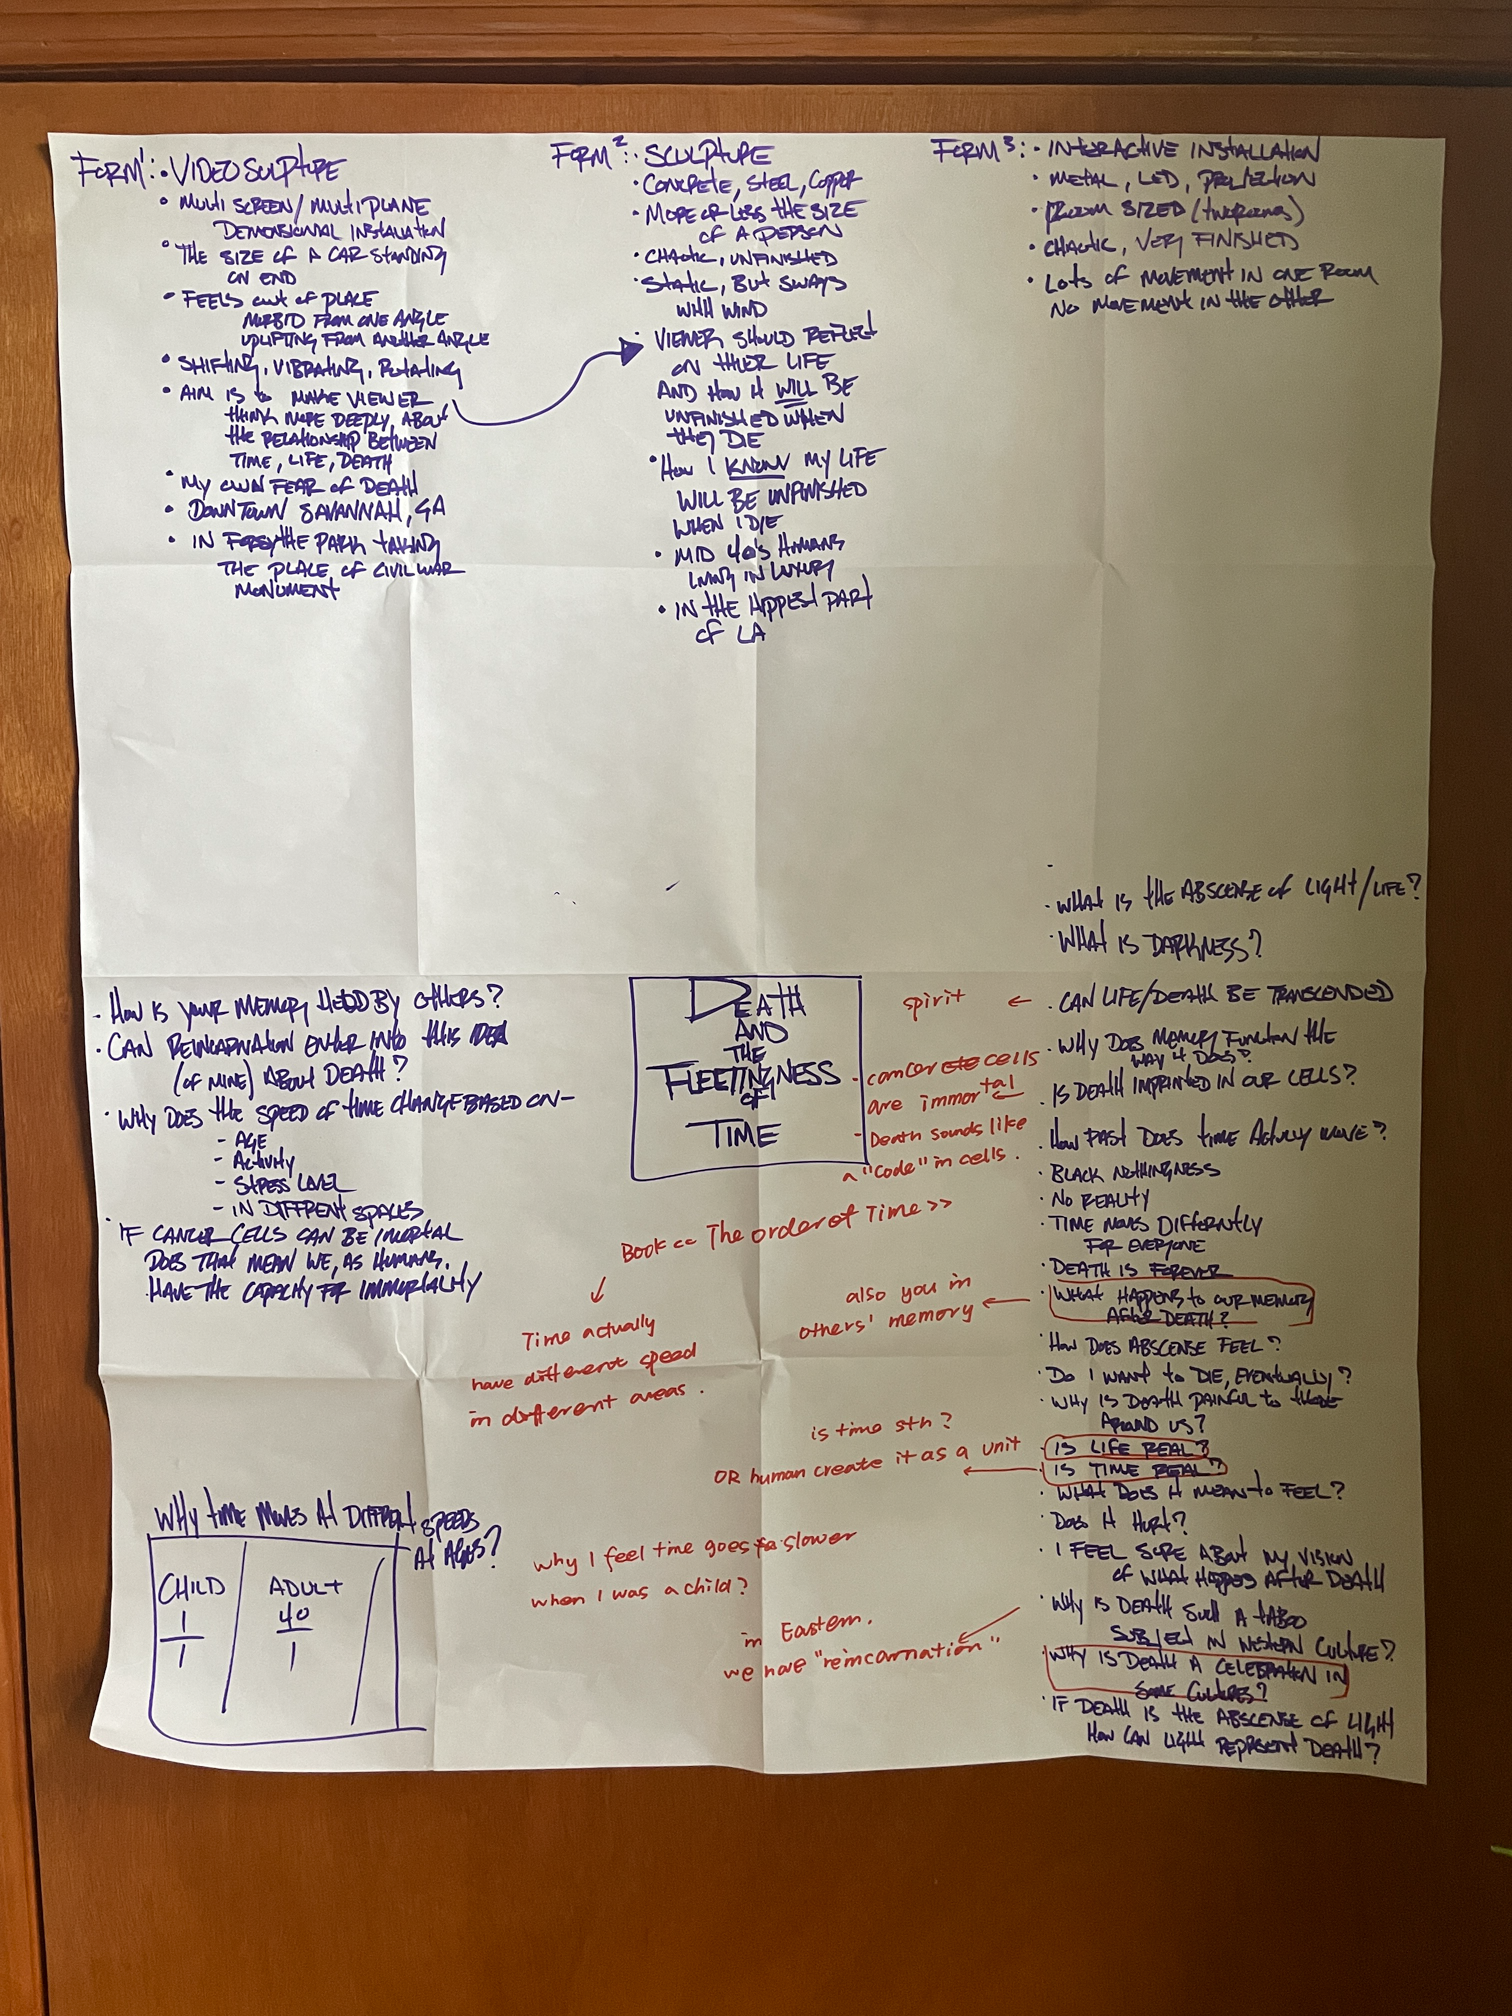 FORM 1: · VIDEO SULPTURE
· MULTI SCREEN / MULTI PLANE
DEMENSIONAL INSTALLATION
· THE SIZE OF A CAR STANDING
ON END
· FEELS OUT OF PLACE
MORBID FROM ONE ANGLE
UPLIFTING FROM ANOTHER ANGLE
· SHIFTING, VIBRATING, ROTATING
· AIM IS TO MAKE VIEWER
THINK MORE DEEPLY, ABOUT
THE RELATIONSHIP BETWEEN
TIME, LIFE, DEATH
· MY OWN FEAR OF DEATH
· DOWNTOWN SAVANNAH, GA
· IN FORSYTHE PARK TAKING
THE PLACE OF CIVIL WAR
MONUMENT
FORM 2: · SCULPTURE
· CONCRETE, STEEL, COPPER
· MORE OR LESS THE SIZE
OF A PERSON
· CHAOTIC, UNFINISHED
· STATIC, BUT SWAYS
WITH WIND
· VIEWER SHOULD REFLECT
ON THIER LIFE
AND HOW IT WILL BE
UNFINISHED WHEN
THEY DIE
· HOW I KNOW MY LIFE
WILL BE UNFINISHED
WHEN I DIE
· MID 40'S HUMANS
LIVING IN LUXURY
· IN THE HIPPEST PART
OF LA
FORM 3: · INTERACTIVE INSTALLATION
· METAL, LED, PROJECTION
· ROOM SIZED (TWO ROOMS)
· CHAOTIC, VERY FINISHED
· LOTS OF MOVEMENT IN ONE ROOM
NO MOVEMENT IN THE OTHER
· HOW IS YOUR MEMORY HELD BY OTHERS?
· CAN REINCARNATION ENTER INTO THIS IDEA
(OF MINE) ABOUT DEATH?
· WHY DOES THE SPEED OF TIME CHANGE BASED ON -
- AGE
- ACTIVITY
- STRESS LEVEL
- IN DIFFRENT SPACES
· IF CANCER CELLS CAN BE IMORTAL
DOES THAT MEAN WE, AS HUMANS,
HAVE THE CAPACITY FOR IMMORTALITY
DEATH
AND
THE
FLEETINGNESS
OF
TIME
spirit ←
- cancer cells
are immortal
- Death sounds like
a "code" in cells.
Book << The order of Time >>
Time actually
have different speed
in different areas.
also you in
others' memory
is time sth?
OR human create it as a unit
why I feel time goes slower
when I was a child?
in Eastern.
we have "reincarnation"
· WHAT IS THE ABSCENSE OF LIGHT/LIFE?
· WHAT IS DARKNESS?
· CAN LIFE/DEATH BE TRANSCENDED
· WHY DOES MEMORY FUNCTION THE
WAY IT DOES?
· IS DEATH IMPRINTED IN OUR CELLS?
· HOW FAST DOES TIME ACTUALLY MOVE?
· BLACK NOTHINGNESS
· NO REALITY
· TIME MOVES DIFFERNTLY
FOR EVERYONE
· DEATH IS FOREVER
· WHAT HAPPENS TO OUR MEMORY
AFTER DEATH?
· HOW DOES ABSCENSE FEEL?
· DO I WANT TO DIE, EVENTUALLY?
· WHY IS DEATH PAINFUL TO THOSE
AROUND US?
· IS LIFE REAL?
· IS TIME REAL?
· WHAT DOES IT MEAN TO FEEL?
· DOES IT HURT?
· I FEEL SURE ABOUT MY VISION
OF WHAT HAPPES AFTER DEATH
· WHY IS DEATH SUCH A TABOO
SUBJECT IN WESTERN CULTURE?
· WHY IS DEATH A CELEBRATION IN
SOME CULTURES?
· IF DEATH IS THE ABSCENSE OF LIGHT
HOW CAN LIGHT REPRESENT DEATH?
WHY TIME MOVES AT DIFFRENT SPEEDS
AT AGES?
CHILD
1
1
ADULT
40
1